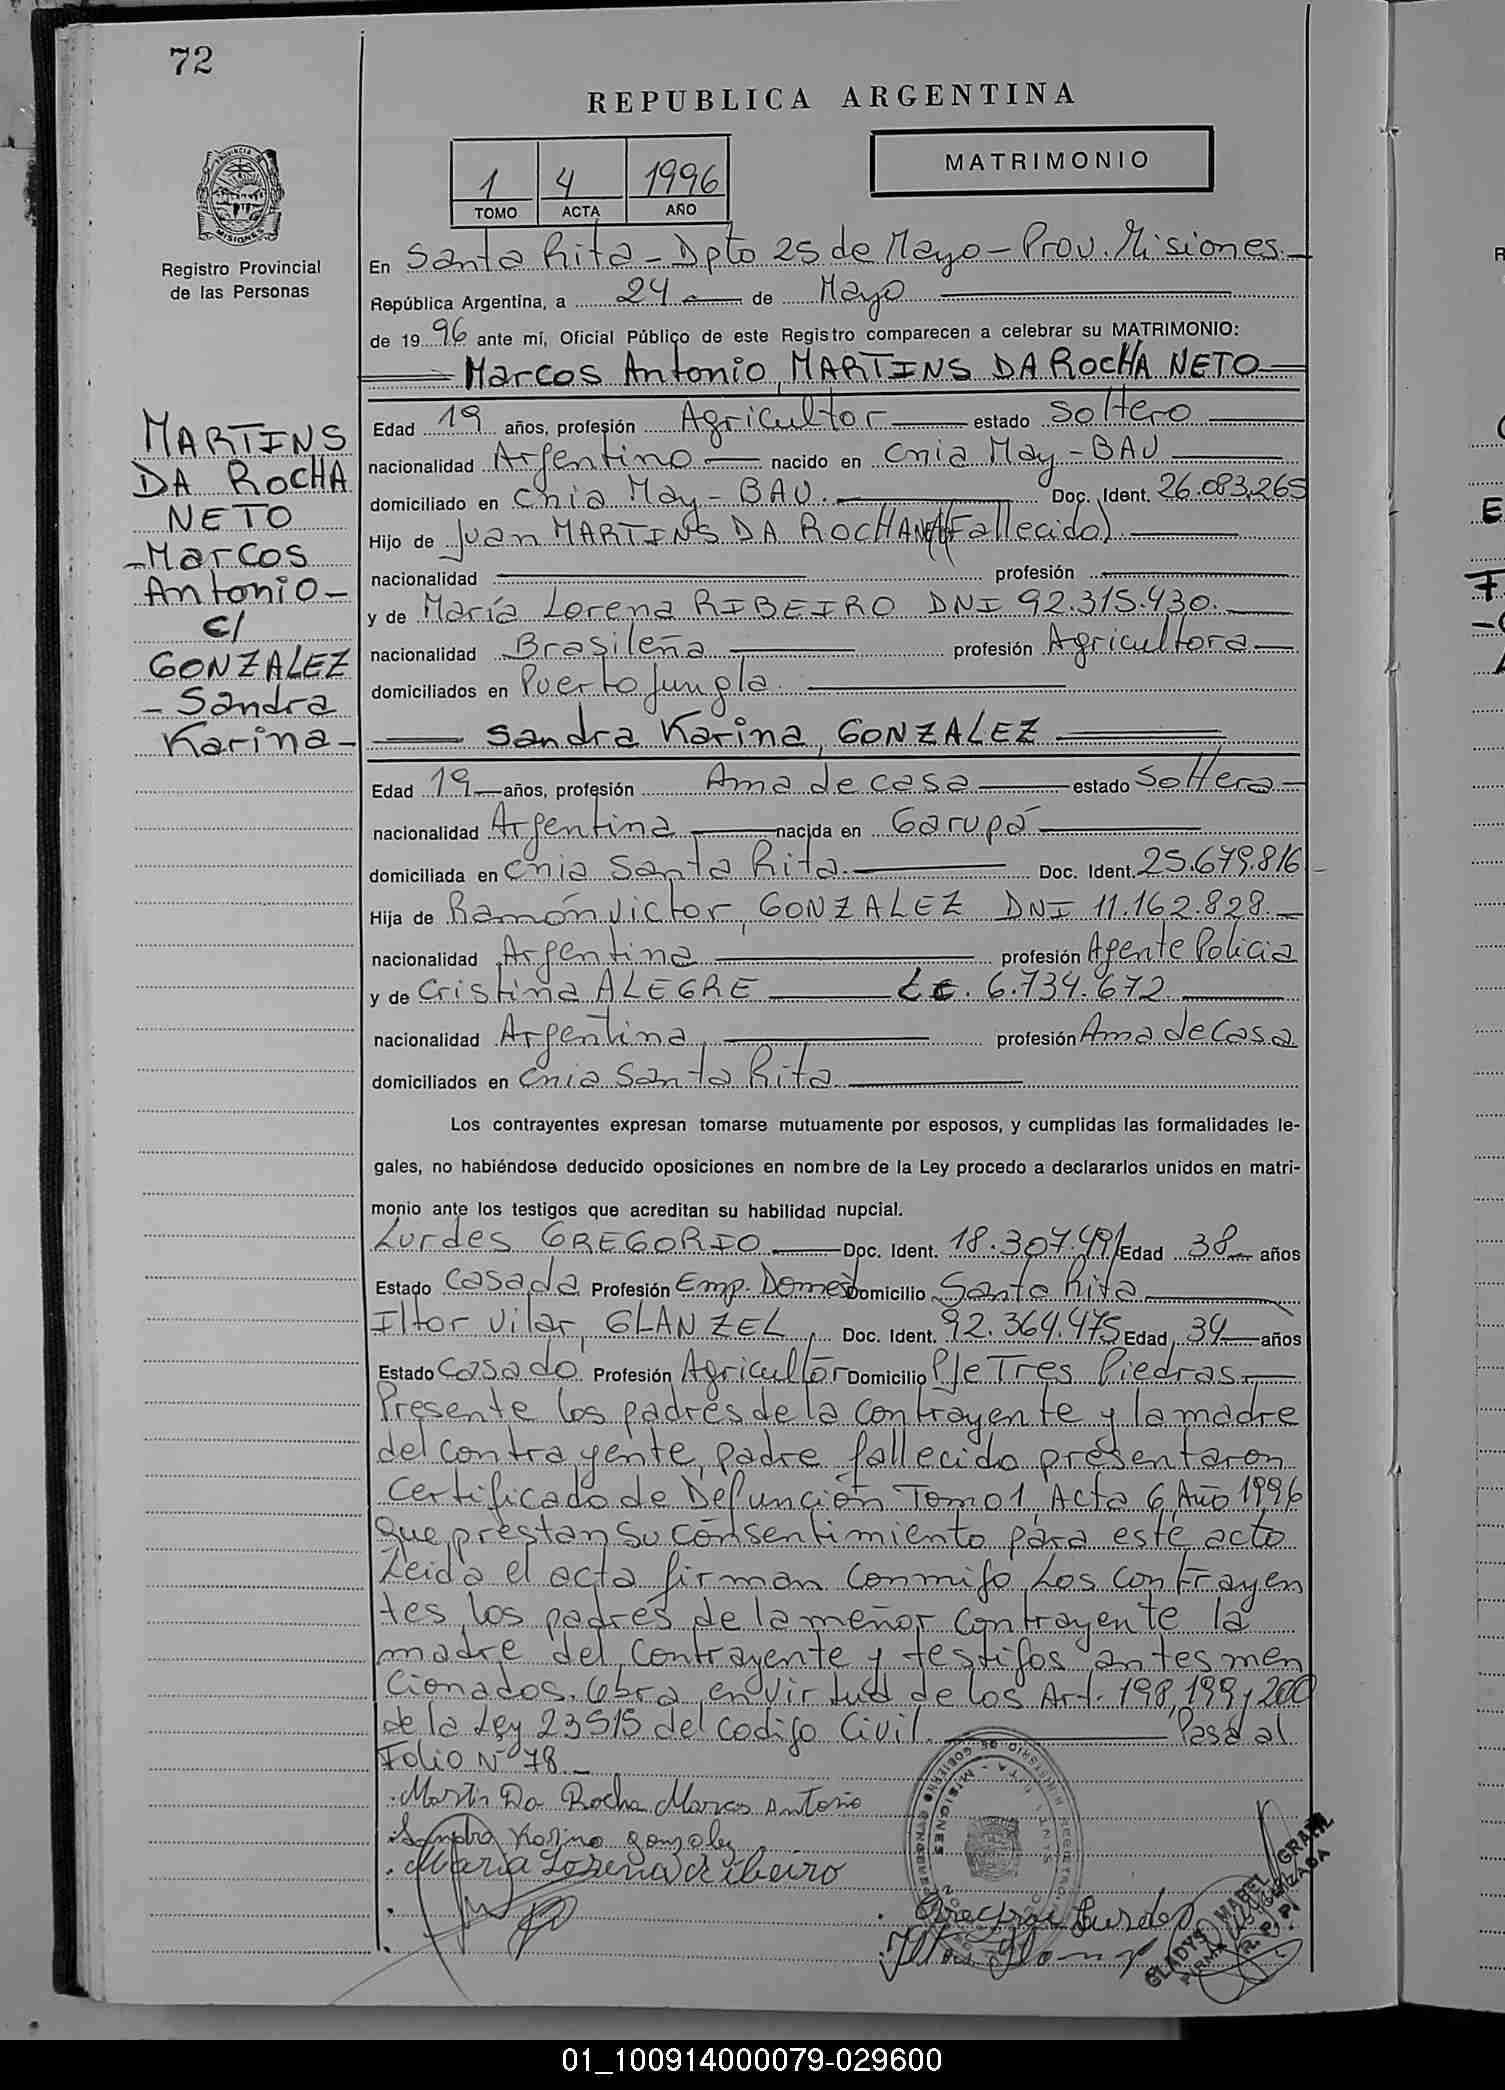 72
REPUBLICA ARGENTINA
MATRIMONIO
1 4 1996
TOMO ACTA AÑO
PROVINCIA DE MISIONES
Registro Provincial
de las Personas
En Santa Rita - Dpto 25 de Mayo - Prov. Misiones.
República Argentina, a 24 de Mayo
de 1996 ante mí, Oficial Público de este Registro comparecen a celebrar su MATRIMONIO:
Marcos Antonio, MARTINS DA ROCHA NETO
MARTINS
DA ROCHA
NETO
- Marcos
Antonio -
c/
GONZALEZ
- Sandra
Karina -
Edad 19 años, profesión Agricultor estado Soltero
nacionalidad Argentino nacido en Cnia May - BAU
domiciliado en Cnia May - BAU. Doc. Ident. 26.083.265
Hijo de Juan MARTINS DA ROCHA (Fallecido)
nacionalidad profesión
y de María Lorena RIBEIRO DNI 92.315.430.
nacionalidad Brasileña profesión Agricultora
domiciliados en Puerto Jungla
Sandra Karina, GONZALEZ
Edad 19 años, profesión Ama de casa estado Soltera
nacionalidad Argentina nacida en Garupá
domiciliada en Cnia Santa Rita. Doc. Ident. 25.679.816
Hija de Ramón Victor, GONZALEZ DNI 11.162.828.
nacionalidad Argentina profesión Agente Policia
y de Cristina ALEGRE LC. 6.734.672
nacionalidad Argentina profesión Ama de Casa
domiciliados en Cnia Santa Rita
Los contrayentes expresan tomarse mutuamente por esposos, y cumplidas las formalidades le-
gales, no habiéndose deducido oposiciones en nombre de la Ley procedo a declararlos unidos en matri-
monio ante los testigos que acreditan su habilidad nupcial.
Lurdes GREGORIO Doc. Ident. 18.307.491 Edad 38 años
Estado Casada Profesión Emp. Domes Domicilio Santa Rita
Iltor Vilar, GLANZEL, Doc. Ident. 92.364.475 Edad, 34 años
Estado Casado Profesión Agricultor Domicilio Pje Tres Piedras
Presente los padres de la contrayente y la madre
del contrayente, padre fallecido presentaron
Certificado de Defunción Tomo 1 Acta 6 Año 1996
que prestan su consentimiento para este acto
Leida el acta firman conmigo Los contrayen
tes, los padres de la menor contrayente la
madre del contrayente y testigos antes men
cionados. Obra en virtud de los Art. 198, 199 y 200
de la Ley 23515 del Codigo Civil. Pasa al
Folio Nº 78.-
Martin Da Rocha Marcos Antonio
Sandra Karina gonzalez
Maria Lorena Ribeiro
Gregorio Lurdes
GLADYS MABEL
FIRMA AUTORIZADA
R. P. P.
01_100914000079-029600